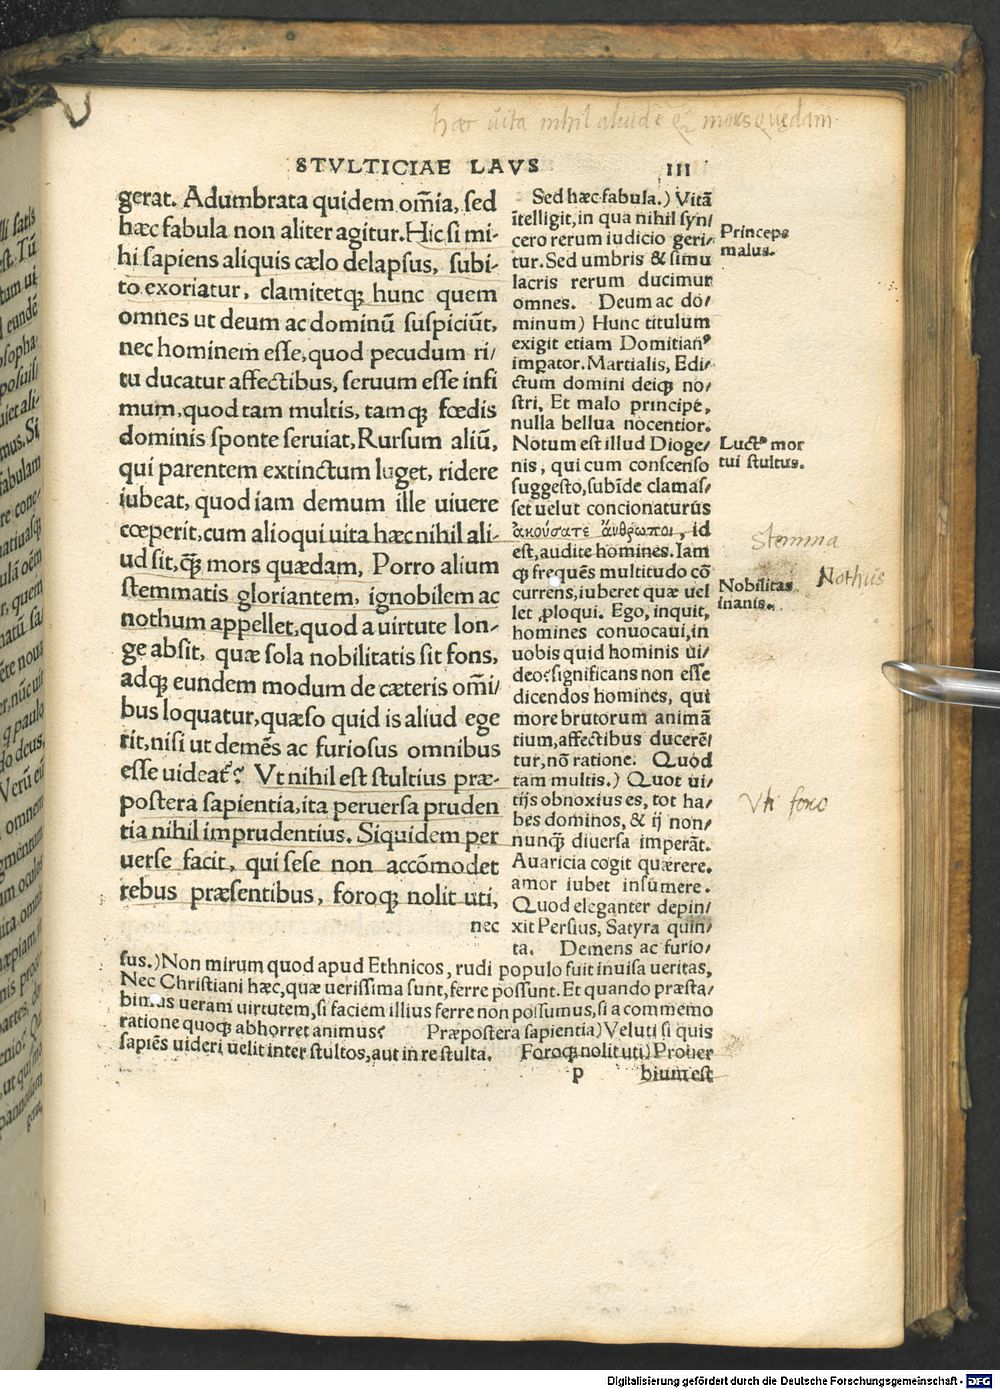 hæc uita nihil aliud ē q̃ mors quędam
STVLTICIAE LAVS
III
gerat. Adumbrata quidem om̃ia, sed
hæc fabula non aliter agitur. Hic si mi-
hi sapiens aliquis cælo delapsus, subi-
to exoriatur, clamitetqꝫ hunc quem
omnes ut deum ac dominũ suspiciũt,
nec hominem esse, quod pecudum ri/
tu ducatur affectibus, seruum esse infi
mum, quod tam multis, tamqꝫ fœdis
dominis sponte seruiat, Rursum aliũ,
qui parentem extinctum luget, ridere
iubeat, quod iam demum ille uiuere
cœperit, cum alioqui uita hæc nihil ali-
ud sit, q̃ꝫ mors quædam, Porro alium
stemmatis gloriantem, ignobilem ac
nothum appellet, quod a uirtute lon-
ge absit, quæ sola nobilitatis sit fons,
adqꝫ eundem modum de cæteris om̃i/
bus loquatur, quæso quid is aliud ege
rit, nisi ut demẽs ac furiosus omnibus
esse uideat᷑? Vt nihil est stultius præ-
postera sapientia, ita peruersa pruden
tia nihil imprudentius. Siquidem per
uerse facit, qui sese non accõmodet
rebus præsentibus, foroqꝫ nolit uti,
nec
Sed hæc fabula.) Vitã
ĩtelligit, in qua nihil syn/
cero rerum iudicio geri/
tur. Sed umbris & simu
lacris rerum ducimur
omnes. Deum ac do/
minum) Hunc titulum
exigit etiam Domitianꝰ
imꝑator. Martialis, Edi/
ctum domini deiqꝫ no/
stri, Et malo principe,
nulla bellua nocentior.
Notum est illud Dioge/
nis, qui cum conscenso
suggesto, subĩde clamas/
set uelut concionaturus
ἀκούσατε ἄνθρωποι, id
est, audite homines. Iam
qꝫ frequẽs multitudo cõ
currens, iuberet quæ uel
let ꝓloqui. Ego, inquit,
homines conuocaui, in
uobis quid hominis ui/
deo? significans non esse
dicendos homines, qui
more brutorum animã
tium, affectibus ducerẽ/
tur, nõ ratione. Quod
tam multis.) Quot ui/
tijs obnoxius es, tot ha/
bes dominos, & ij non/
nunq̃ꝫ diuersa imperãt.
Auaricia cogit quærere.
amor iubet insumere.
Quod eleganter depin/
xit Persius, Satyra quin/
ta. Demens ac furio/
sus.) Non mirum quod apud Ethnicos, rudi populo fuit inuisa ueritas,
Nec Christiani hæc, quæ uerissima sunt, ferre possunt. Et quando præsta/
bimus ueram uirtutem, si faciem illius ferre non possumus, si a commemo
ratione quoqꝫ abhorret animus? Præpostera sapientia) Veluti si quis
sapiẽs uideri uelit inter stultos, aut in re stulta. Foroqꝫ nolit uti) Prouer
p bium est
Princeps
malus.
Luctꝰ mor
tui stultus.
Stemma
Nothus
Nobilitas
inanis.
Vti foro
Digitalisierung gefördert durch die Deutsche Forschungsgemeinschaft - DFG